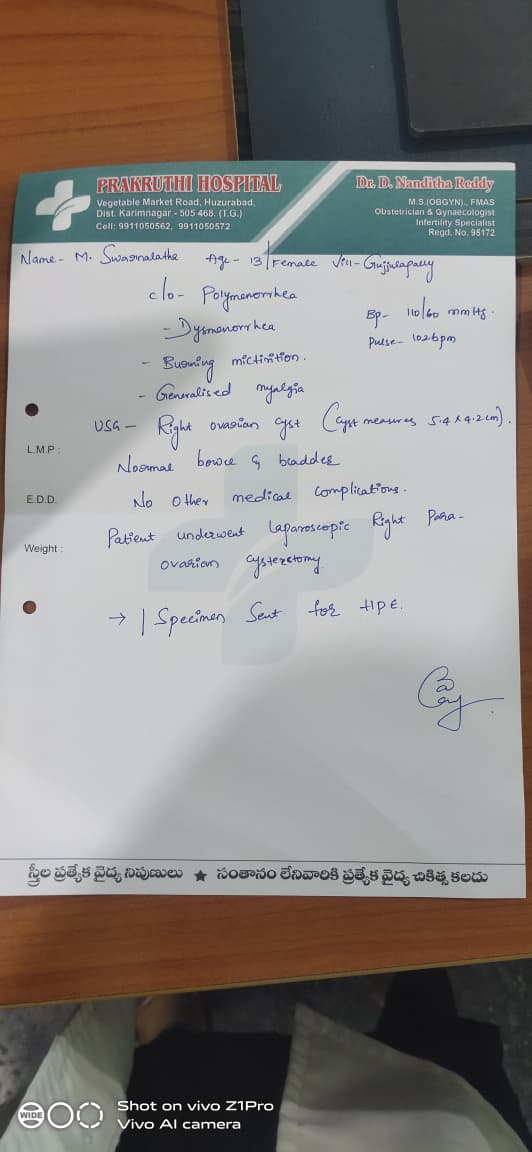 PRAKRUTHI HOSPITAL
Vegetable Market Road, Huzurabad,
Dist. Karimnagar - 505 468. (T.G.)
Cell: 9911050562, 9911050572
Dr. D. Nanditha Reddy
M.S.(OBGYN)., FMAS
Obstetrician & Gynaecologist
Infertility Specialist
Regd. No. 95172
Name - M. Swarnalatha Age - 13/Female Vill - Gujjulapally
c/o - Polymenorrhea
- Dysmenorrhea
Bp - 110/60 mmHg.
Pulse - 102bpm
- Burning mictirition.
- Generalised myalgia
USG - Right ovarian cyst (cyst measures 5.4 x 4.2 cm).
L.M.P :
Normal bowel & bladder
E.D.D.
No other medical complications.
Weight :
Patient underwent laparoscopic Right Para-
ovarian cysterctomy
→ 1 Specimen Sent for HPE.
స్త్రీల ప్రత్యేక వైద్య నిపుణులు ★ సంతానం లేనివారికి ప్రత్యేక వైద్య చికిత్స కలదు
WIDE
Shot on vivo Z1Pro
Vivo AI camera